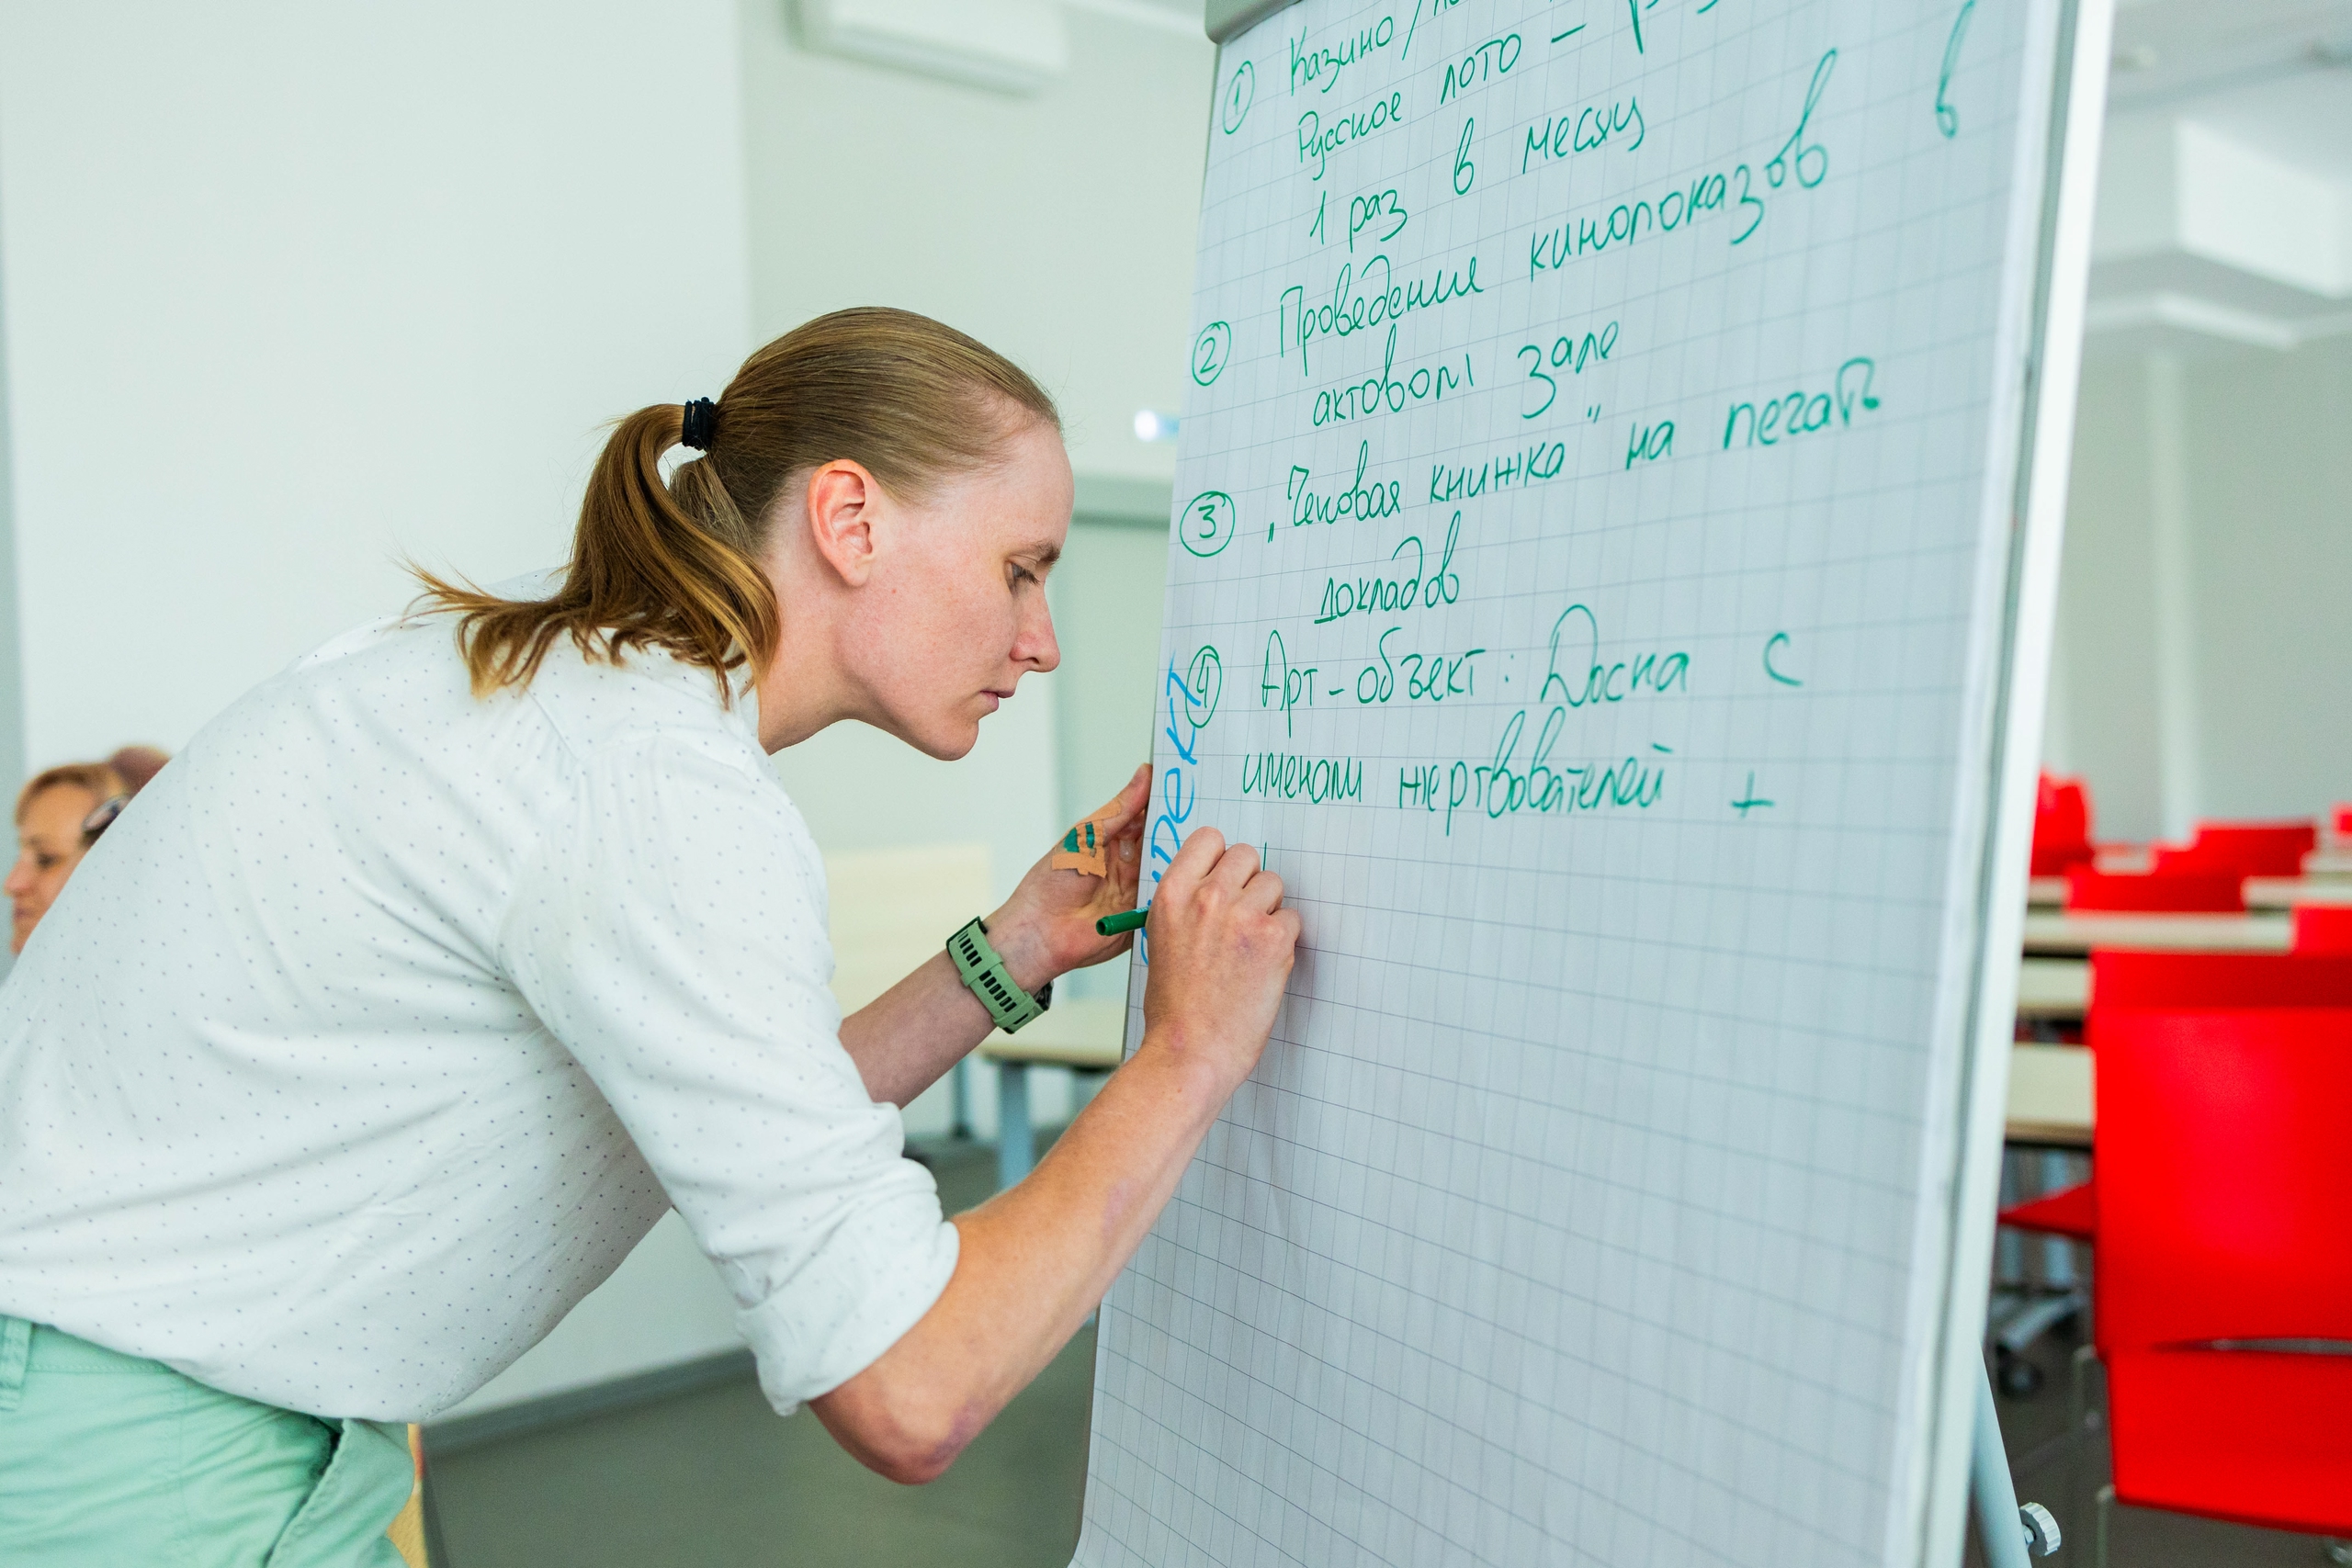 ① Казино /
Русское лото –
1 раз в месяц
② Проведение кинопоказов в
актовом зале
③ „Чековая книжка" на печать
докладов
④ Арт-объект: Доска с
именами жертвователей +